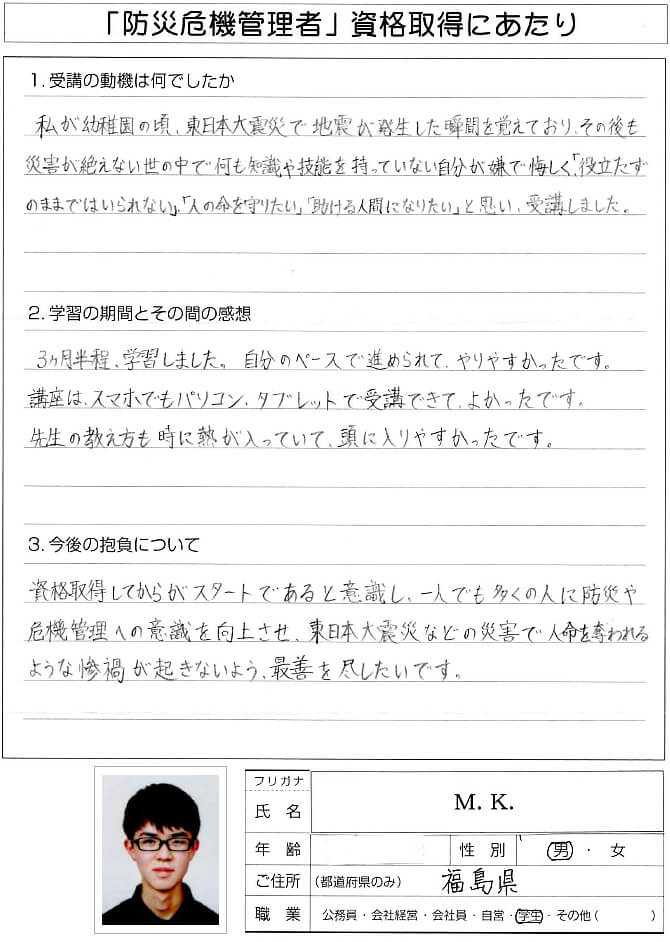 「防災危機管理者」資格取得にあたり
1. 受講の動機は何でしたか
私が幼稚園の頃、東日本大震災で地震が発生した瞬間を覚えており、その後も
災害が絶えない世の中で何も知識や技能を持っていない自分が嫌で悔しく、「役立たず
のままではいられない」、「人の命を守りたい」「助ける人間になりたい」と思い、受講しました。
2. 学習の期間とその間の感想
3ヶ月半程、学習しました。自分のペースで進められて、やりやすかったです。
講座は、スマホでもパソコン、タブレットで受講できて、よかったです。
先生の教え方も時に熱が入っていて、頭に入りやすかったです。
3. 今後の抱負について
資格取得してからがスタートであると意識し、一人でも多くの人に防災や
危機管理への意識を向上させ、東日本大震災などの災害で人命を奪われる
ような惨禍が起きないよう、最善を尽したいです。
フリガナ
氏 名 M. K.
年 齢 性 別 男 ・ 女
ご住所 (都道府県のみ) 福島県
職 業 公務員・会社経営・会社員・自営・学生・その他( )